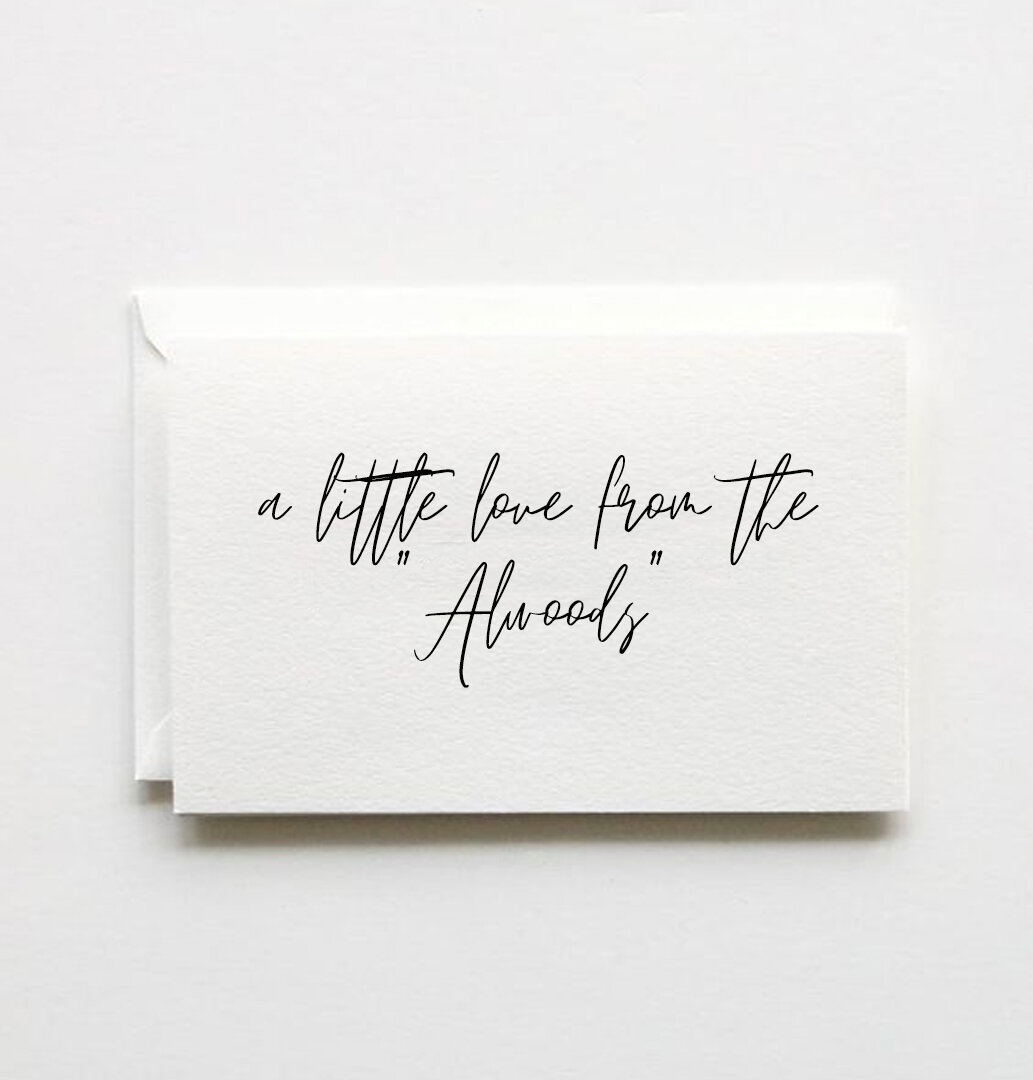 a little love from the
"Alwoods"